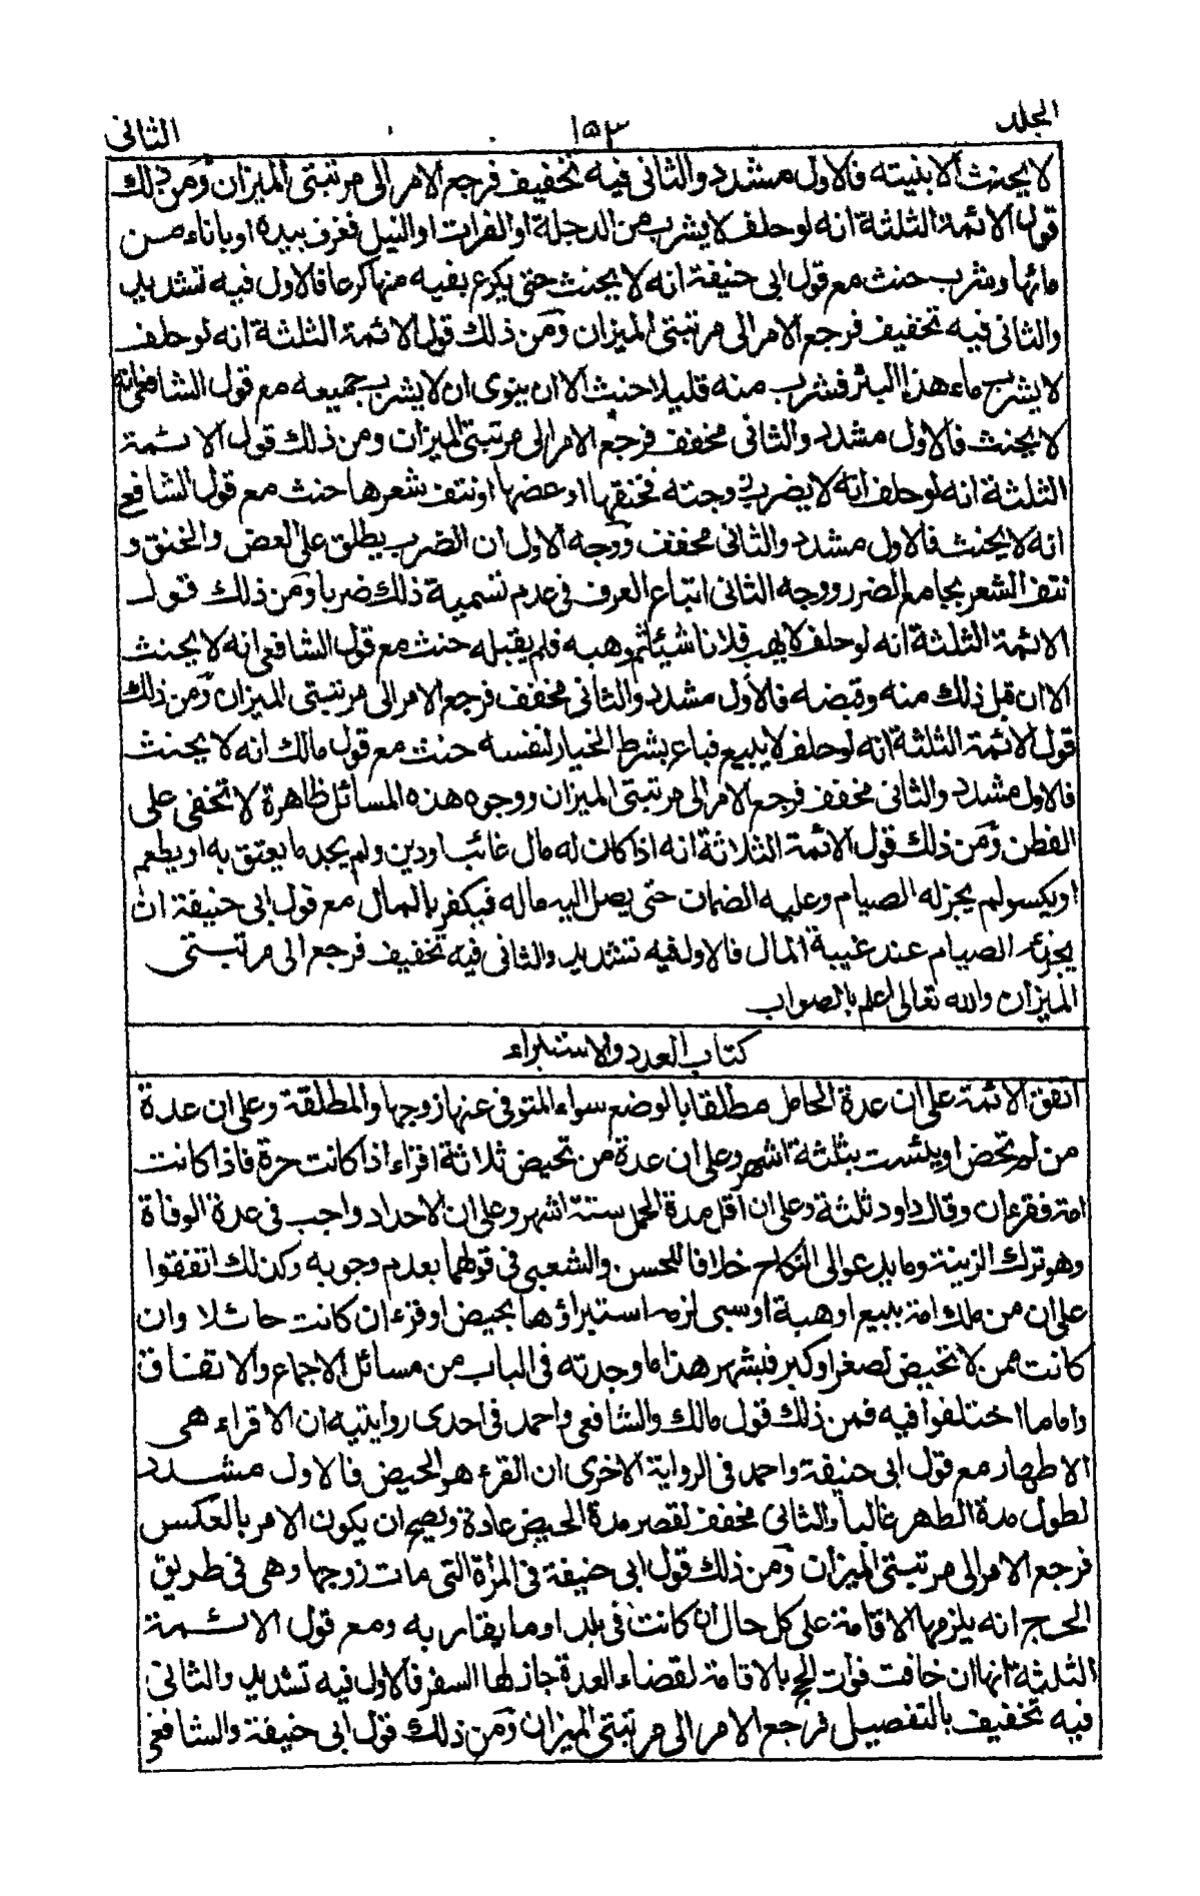 الجلد ١٥٣ الثاني
لا يحنث الا بنيته فالاول مشدد والثاني فيه تخفيف فرجع الامر الى مرتبتي الميزان ومن ذلك
قول الائمة الثلثة انه لو حلف لا يشرب من الدجلة او الفرات او النيل فغرف بيده او باناء من
مائها وشرب حنث مع قول ابي حنيفة انه لا يحنث حتى يكرع بفيه منها كرعا فالاول فيه تشديد
والثاني فيه تخفيف فرجع الامر الى مرتبتي الميزان ومن ذلك قول الائمة الثلثة انه لو حلف
لا يشرب ماء هذا البئر فشرب منه قليلا حنث الا ان ينوى ان لا يشرب جميعه مع قول الشافعي انه
لا يحنث فالاول مشدد والثاني مخفف فرجع الامر الى مرتبتي الميزان ومن ذلك قول الائمة
الثلثة انه لو حلف انه لا يضرب زوجته فخنقها او عضها او نتف شعرها حنث مع قول الشافعي
انه لا يحنث فالاول مشدد والثاني مخفف ووجه الاول ان الضرب يطلق على العض والخنق و
نتف الشعر بجامع الضرر ووجه الثاني اتباع العرف في عدم تسمية ذلك ضربا ومن ذلك قول
الائمة الثلثة انه لو حلف لا يهب فلانا شيئا ثم وهبه فلم يقبله حنث مع قول الشافعي انه لا يحنث
الا ان قبل ذلك منه وقبضه فالاول مشدد والثاني مخفف فرجع الامر الى مرتبتي الميزان ومن ذلك
قول الائمة الثلثة انه لو حلف لا يبيع فباع بشرط الخيار لنفسه حنث مع قول مالك انه لا يحنث
فالاول مشدد والثاني مخفف فرجع الامر الى مرتبتي الميزان ووجوه هذه المسائل ظاهرة لا تخفى على
الفطن ومن ذلك قول الائمة الثلاثة انه اذا كان له مال غائب او دين ولم يجد ما يعتق به او يطعم
او يكسو لم يجز له الصيام وعليه الضمان حتى يصل اليه ماله فيكفر بالمال مع قول ابي حنيفة ان
يجزئه الصيام عند غيبة المال فالاول فيه تشديد والثاني فيه تخفيف فرجع الى مرتبتي
الميزان والله تعالى اعلم بالصواب
كتاب العدد والاستبراء
اتفق الائمة على ان عدة الحامل مطلقا بالوضع سواء المتوفى عنها زوجها والمطلقة وعلى ان عدة
من لم تحض او يئست بثلثة اشهر وعلى ان عدة من تحيض ثلاثة اقراء اذا كانت حرة فاذا كانت
امة فقرءان وقال داود ثلثة وعلى ان اقل مدة الحمل ستة اشهر وعلى ان الاحداد واجب في عدة الوفاة
وهو ترك الزينة وما يدعو الى النكاح خلافا للحسن والشعبي في قولهما بعدم وجوبه وكذلك اتفقوا
على ان من ملك امة ببيع او هبة او سبى لزمه استبراؤها بحيض او قرء ان كانت حائلا وان
كانت ممن لا تحيض لصغر او كبر فبشهر هذا ما وجدته في الباب من مسائل الاجماع والاتفاق
واما ما اختلفوا فيه فمن ذلك قول مالك والشافعي واحمد في احدى روايتيه ان الاقراء هي
الاطهار مع قول ابي حنيفة واحمد في الرواية الاخرى ان القرء هو الحيض فالاول مشدد
لطول مدة الطهر غالبا والثاني مخفف لقصر مدة الحيض عادة ويصح ان يكون الامر بالعكس
فرجع الامر الى مرتبتي الميزان ومن ذلك قول ابي حنيفة في المرأة التي مات زوجها وهي في طريق
الحج انه يلزمها الاقامة على كل حال ان كانت في بلد او ما يقاربه ومع قول الائمة
الثلثة انها ان خافت فوات الحج بالاقامة لقضاء العدة جاز لها السفر فالاول فيه تشديد والثاني
فيه تخفيف بالتفصيل فرجع الامر الى مرتبتي الميزان ومن ذلك قول ابي حنيفة والشافعي